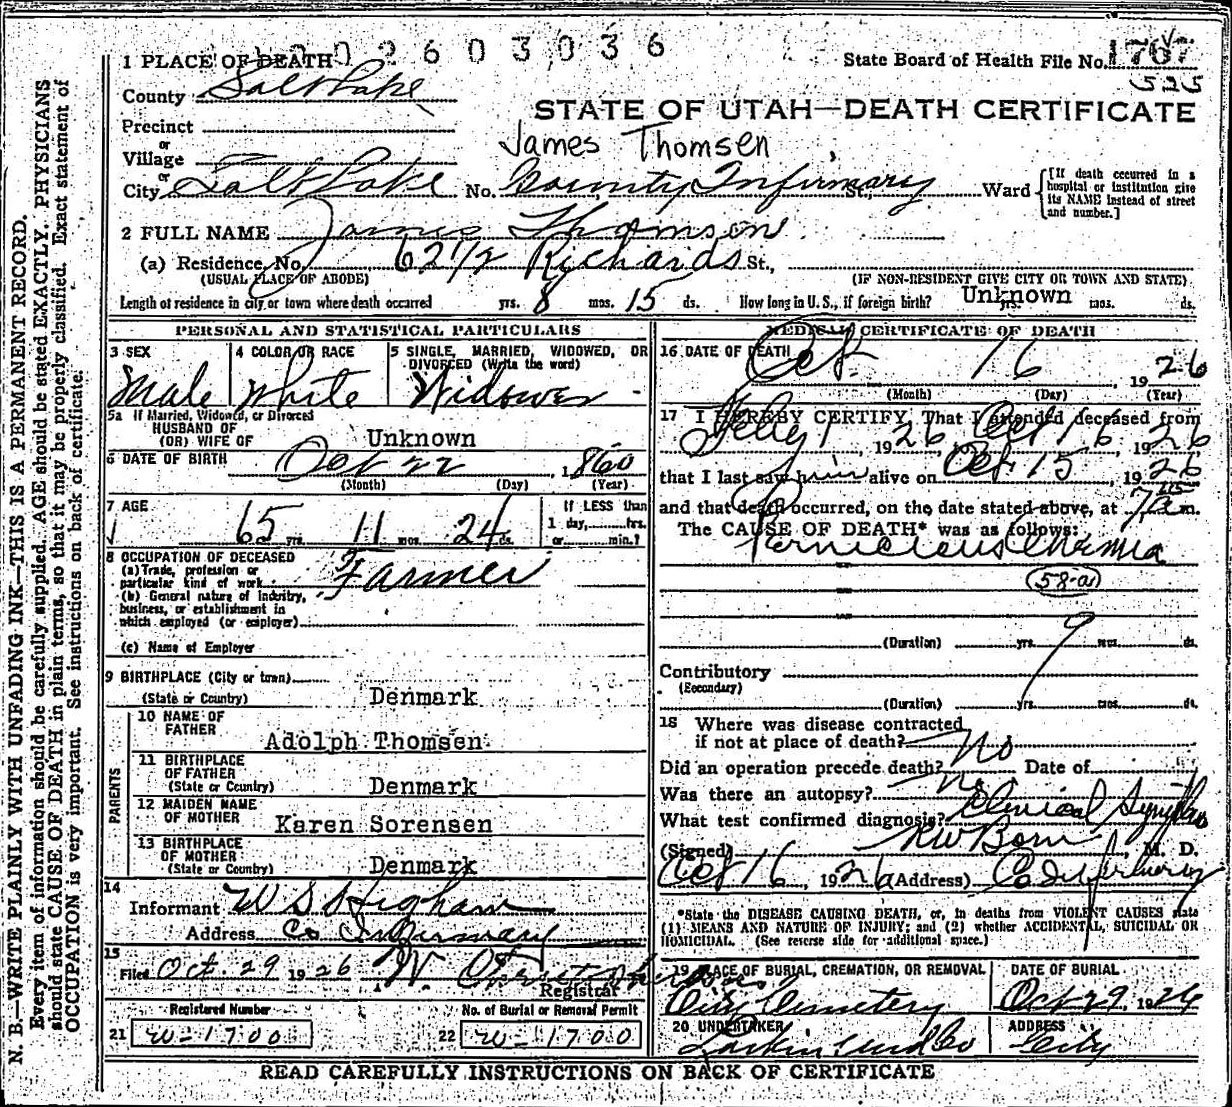 1002603036
1 PLACE OF DEATH
State Board of Health File No. 1767
525
County Salt Lake
STATE OF UTAH—DEATH CERTIFICATE
Precinct
or
James Thomsen
Village
or
City Salt Lake No. County Infirmary St., Ward
[If death occurred in a hospital or institution give its NAME instead of street and number.]
2 FULL NAME James Thomson
(a) Residence, No. 62 1/2 Richards St.,
(USUAL PLACE OF ABODE) (IF NON-RESIDENT GIVE CITY OR TOWN AND STATE)
Length of residence in city or town where death occurred yrs. 8 mos. 15 ds. How long in U. S., if foreign birth? Unknown yrs. mos. ds.
PERSONAL AND STATISTICAL PARTICULARS
3 SEX
Male
4 COLOR OR RACE
White
5 SINGLE, MARRIED, WIDOWED, OR
DIVORCED (Write the word)
Widower
5a If Married, Widowed, or Divorced
HUSBAND OF
(OR) WIFE OF Unknown
6 DATE OF BIRTH Oct 22 1860
(Month) (Day) (Year)
7 AGE
65 yrs. 11 mos. 24 ds.
If LESS than
1 day, hrs.
or min.?
8 OCCUPATION OF DECEASED
(a) Trade, profession or
particular kind of work Farmer
(b) General nature of industry,
business, or establishment in
which employed (or employer)
(c) Name of Employer
9 BIRTHPLACE (City or town)
(State or Country) Denmark
PARENTS
10 NAME OF
FATHER
Adolph Thomsen
11 BIRTHPLACE
OF FATHER
(State or Country) Denmark
12 MAIDEN NAME
OF MOTHER
Karen Sorensen
13 BIRTHPLACE
OF MOTHER
(State or Country) Denmark
14
Informant W S Higham
Address Co Infirmary
15
Filed Oct. 29 1926 W.
Registrar
Registered Number No. of Burial or Removal Permit
21 W-1700 22 W-1700
MEDICAL CERTIFICATE OF DEATH
16 DATE OF DEATH Oct 16, 1926
(Month) (Day) (Year)
17 I HEREBY CERTIFY, That I attended deceased from
Feby 1, 1926, Oct 16, 1926
that I last saw him alive on Oct 15, 1926
and that death occurred, on the date stated above, at 7 15 a m.
The CAUSE OF DEATH* was as follows:
Pernicious Anemia
58-a
(Duration) yrs. 9 mos. ds.
Contributory
(Secondary)
(Duration) yrs. mos. ds.
18 Where was disease contracted
if not at place of death?
No
Did an operation precede death? Date of
Was there an autopsy? No
What test confirmed diagnosis? Clinical Symptoms
(Signed) , M. D.
Oct 16, 1926 (Address) Co Infirmary
*State the DISEASE CAUSING DEATH, or, in deaths from VIOLENT CAUSES state
(1) MEANS AND NATURE OF INJURY; and (2) whether ACCIDENTAL, SUICIDAL OR
HOMICIDAL. (See reverse side for additional space.)
19 PLACE OF BURIAL, CREMATION, OR REMOVAL
City Cemetery
DATE OF BURIAL
Oct 29, 1926
20 UNDERTAKER
Larkin Und Co
ADDRESS
City
READ CAREFULLY INSTRUCTIONS ON BACK OF CERTIFICATE
N. B.—WRITE PLAINLY WITH UNFADING INK—THIS IS A PERMANENT RECORD.
Every item of information should be carefully supplied. AGE should be stated EXACTLY. PHYSICIANS
should state CAUSE OF DEATH in plain terms, so that it may be properly classified. Exact statement of
OCCUPATION is very important. See instructions on back of certificate.